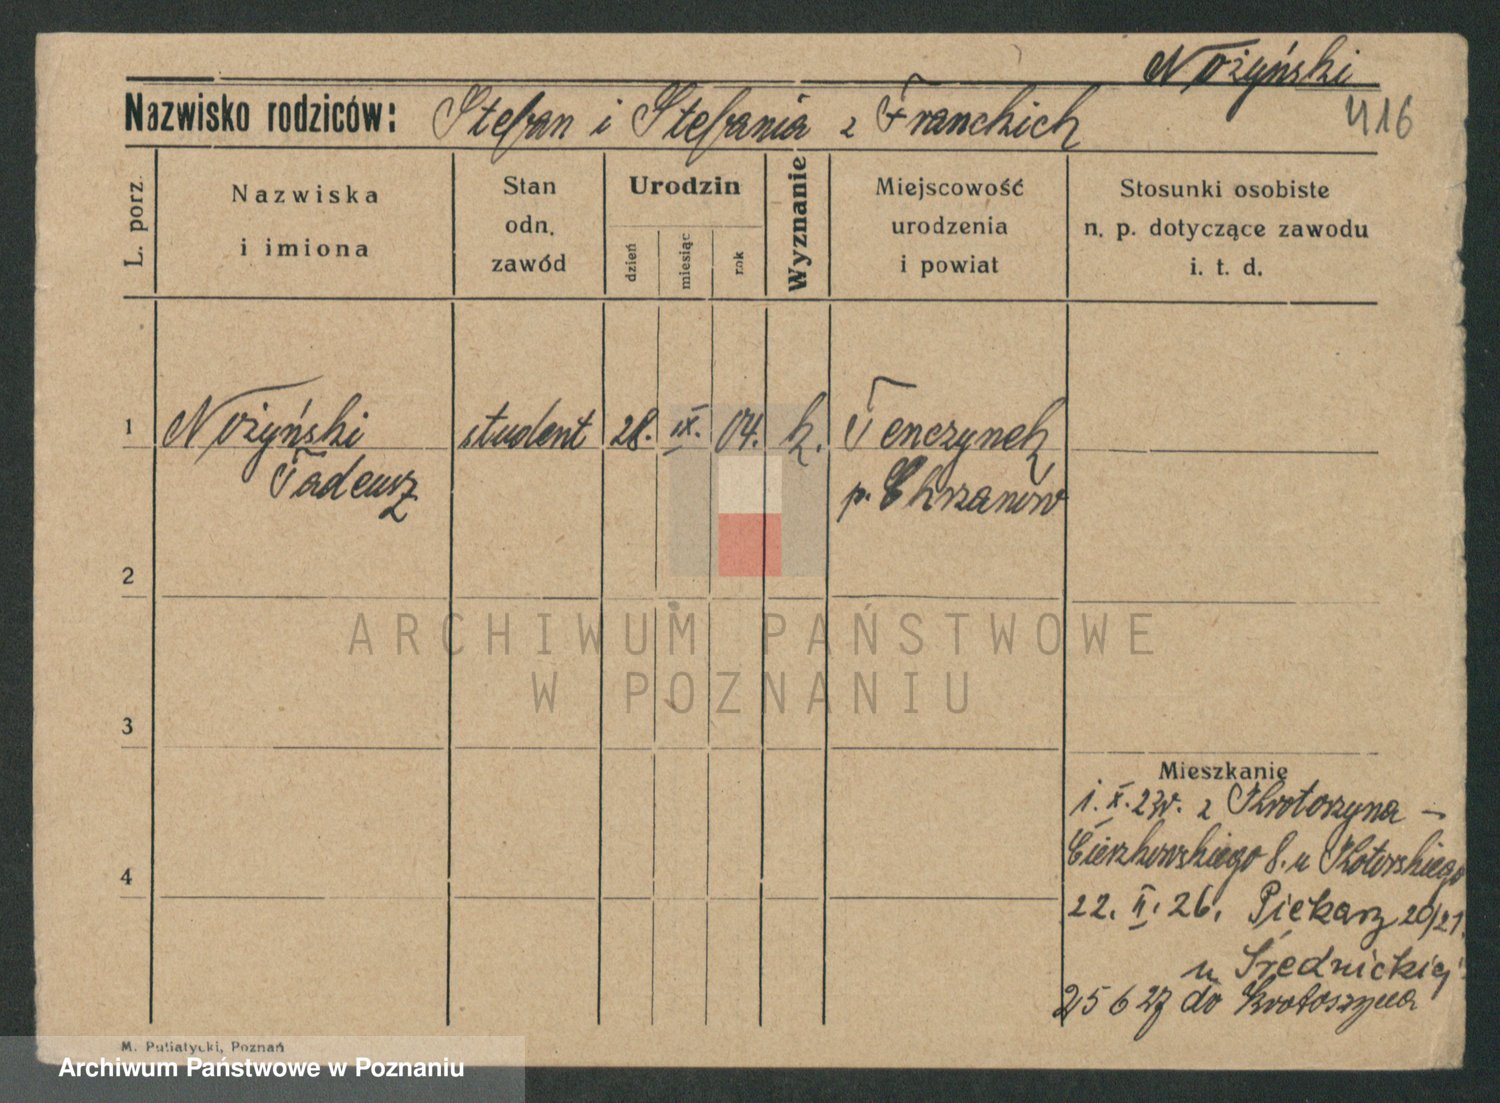 Nożyński
Nazwisko rodziców: Stefan i Stefania z Franckich
416
L. porz.
Nazwiska
i imiona
Stan
odn.
zawód
Urodzin
dzień
miesiąc
rok
Wyznanie
Miejscowość
urodzenia
i powiat
Stosunki osobiste
n. p. dotyczące zawodu
i. t. d.
1 Nożyński student 28. IX. 04. k. Tenczynek
Tadeusz p. Chrzanów
2
ARCHIWUM PAŃSTWOWE
W POZNANIU
3
Mieszkanie
1. X. 23r. z Krotoszyna –
Cieszkowskiego 8. u Kotorskiego
4
22. II. 26. Piekary 20/21.
u Średnickiej
25 6 27 do Krotoszyna
M. Putiatycki, Poznań
Archiwum Państwowe w Poznaniu